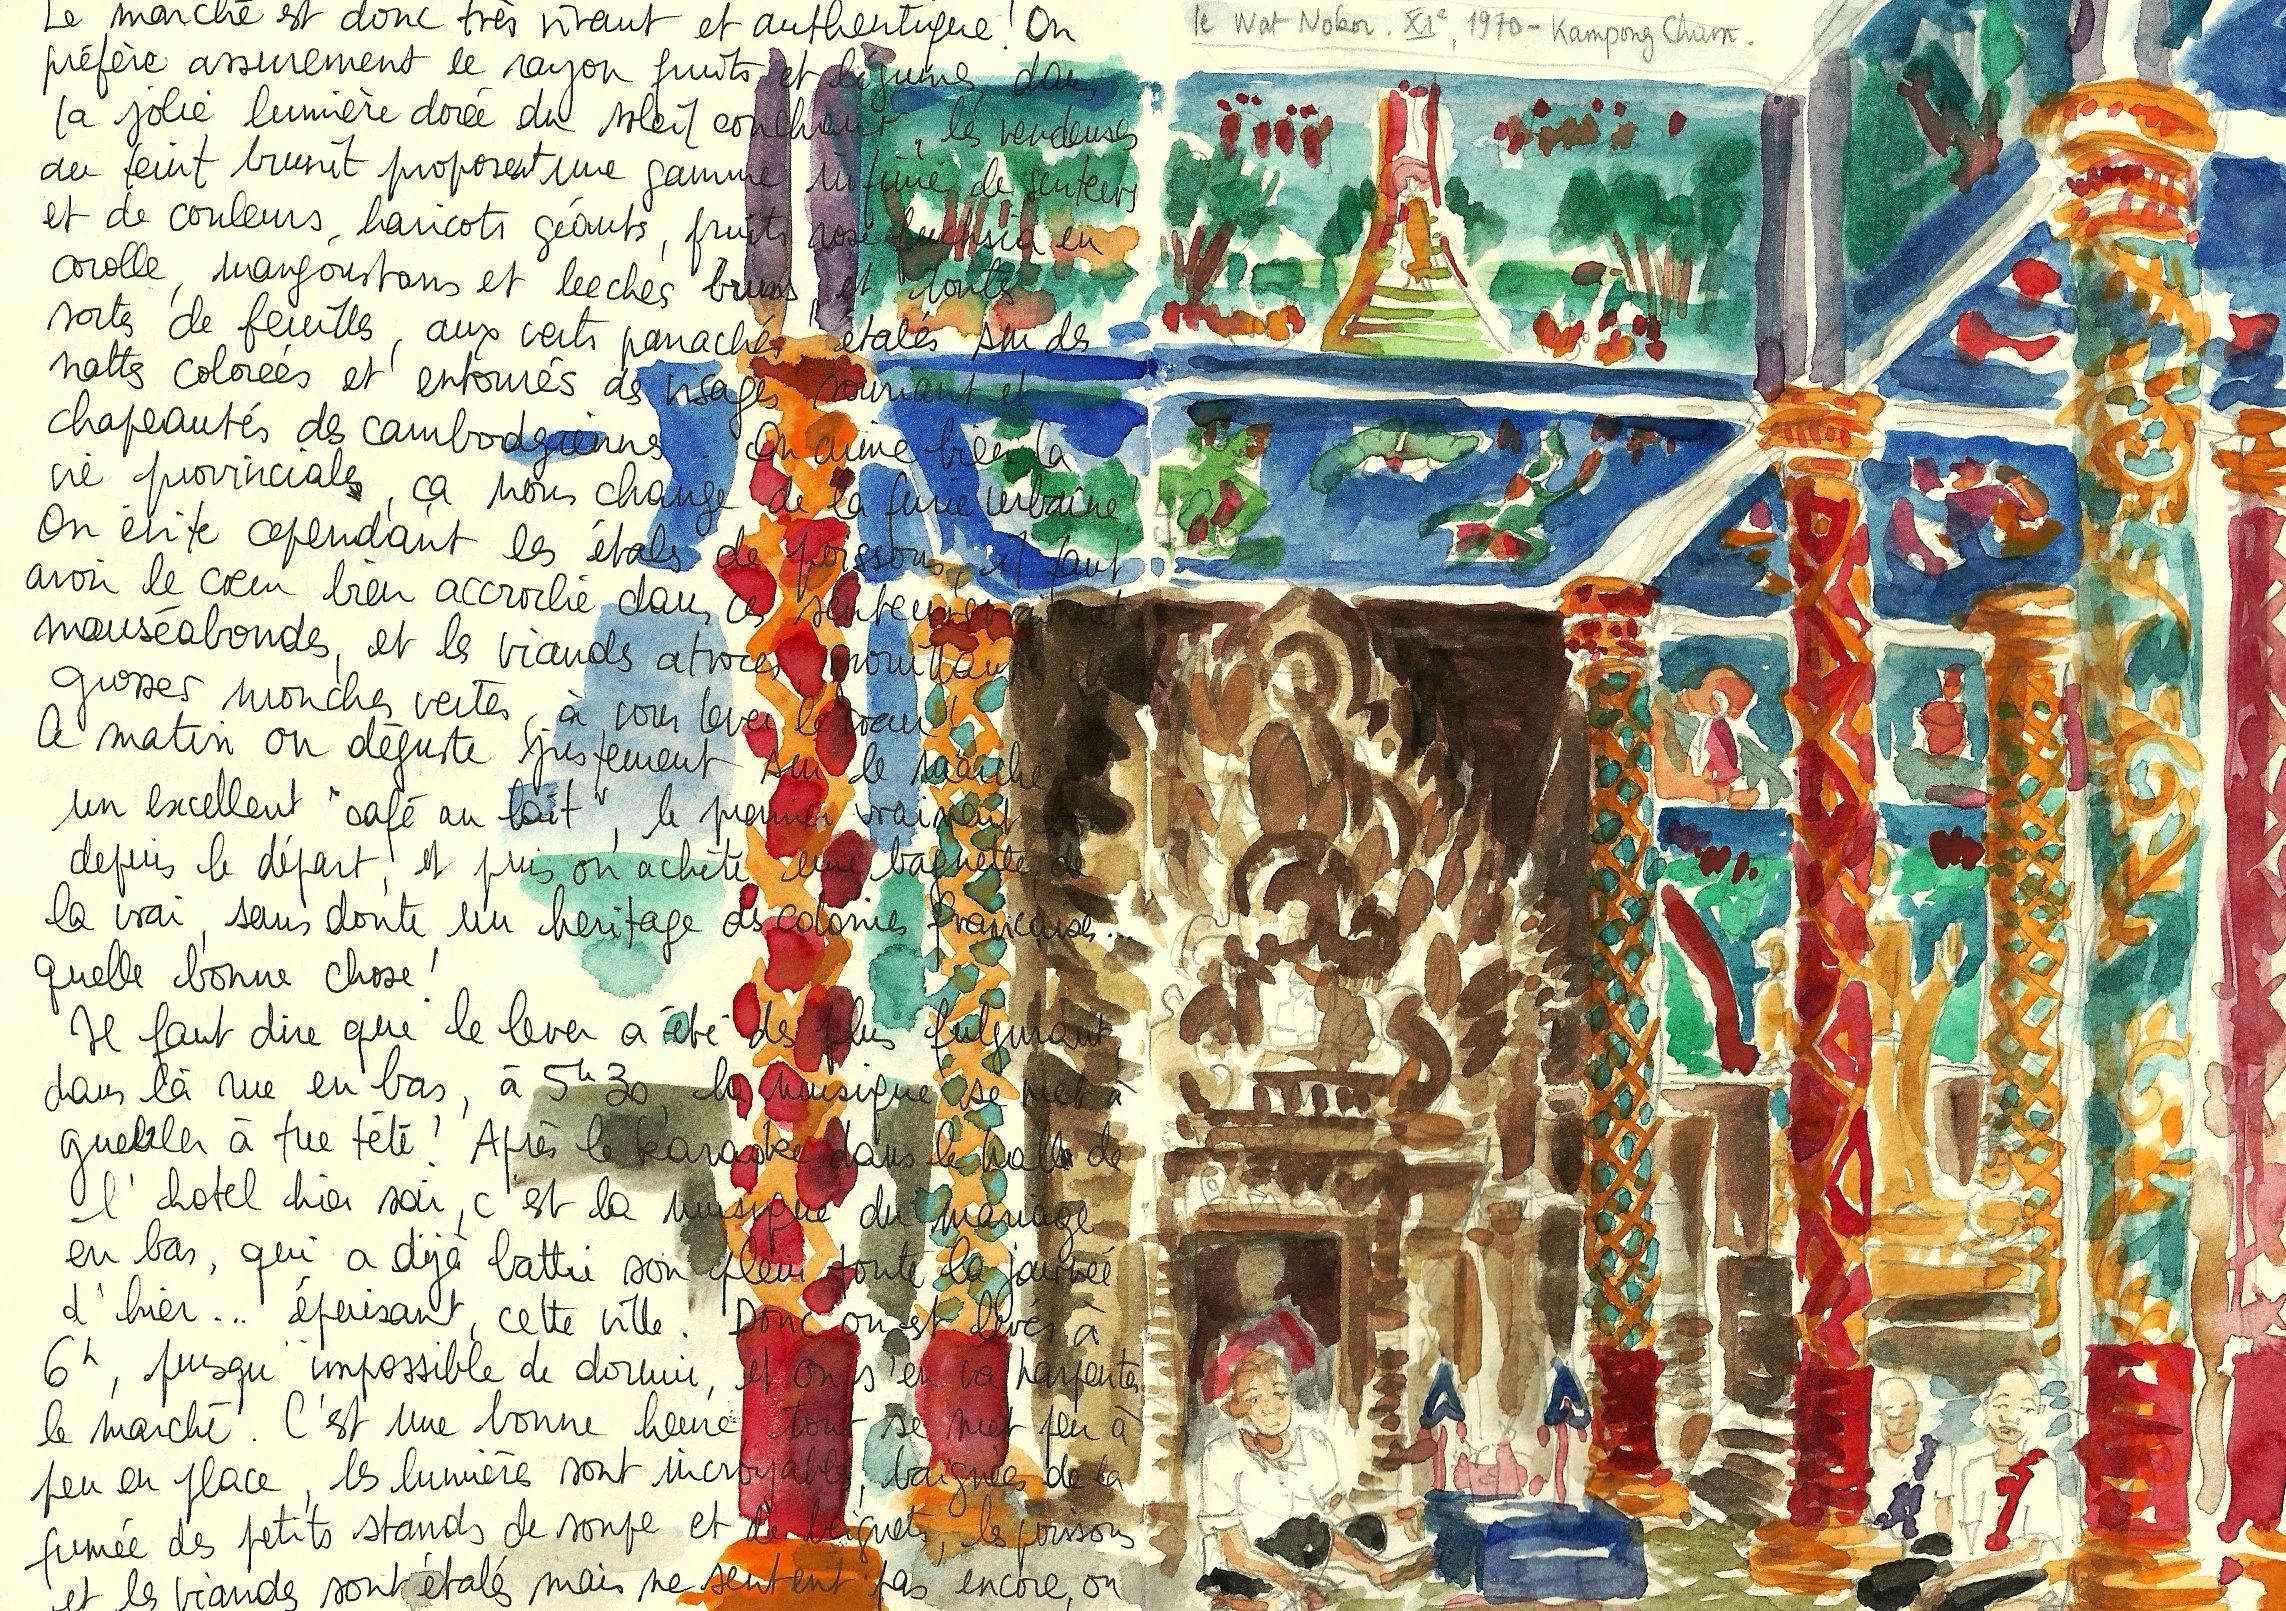 Le marché est donc très vivant et authentique ! On
préfère assurément le rayon fruits et légumes, dans
la jolie lumière dorée du soleil couchant, les vendeuses
au teint brunit proposent une gamme infinie de senteurs
et de couleurs, haricots géants, fruits rose fuchsia en
corolle, mangoustans et leeches bruns, et toutes
sortes de feuilles, aux verts panachés étalés sur des
nattes colorées et entourés de visages souriant et
chapeautés des cambodgiennes. On aime bien la
vie provinciale, ça nous change de la furie urbaine !
On évite cependant les étals de poissons, il faut
avoir le cœur bien accroché dans ces senteurs
nauséabondes, et les viandes atroces
grosses mouches vertes, à vous lever le cœur !
Ce matin on déguste justement sur le marché
un excellent "café au lait", le premier vraiment bon
depuis le départ, et puis on achète une baguette, de
la vrai, sans doute un heritage des colonies françaises...
quelle bonne chose !
Il faut dire que le lever a été des plus fulgurant,
dans la rue en bas, à 5h30, la musique se met à
gueuler à tue tête ! Après le karaoke dans le hall de
l'hotel hier soir, c'est la musique du mariage
en bas, qui a déjà battu son plein toute la journée
d'hier... épuisant, cette ville. Donc on est levés à
6h, jusqu' impossible de dormir, et on s'en va harpenter
le marché. C'est une bonne heure tout se met peu à
peu en place, les lumières sont incroyables, baignées de la
fumée des petits stands de soupe et de beignets, les poissons
et les viandes sont étalés mais ne sentent pas encore, on
le Wat Nokor. XIe, 1970 - Kampong Cham.